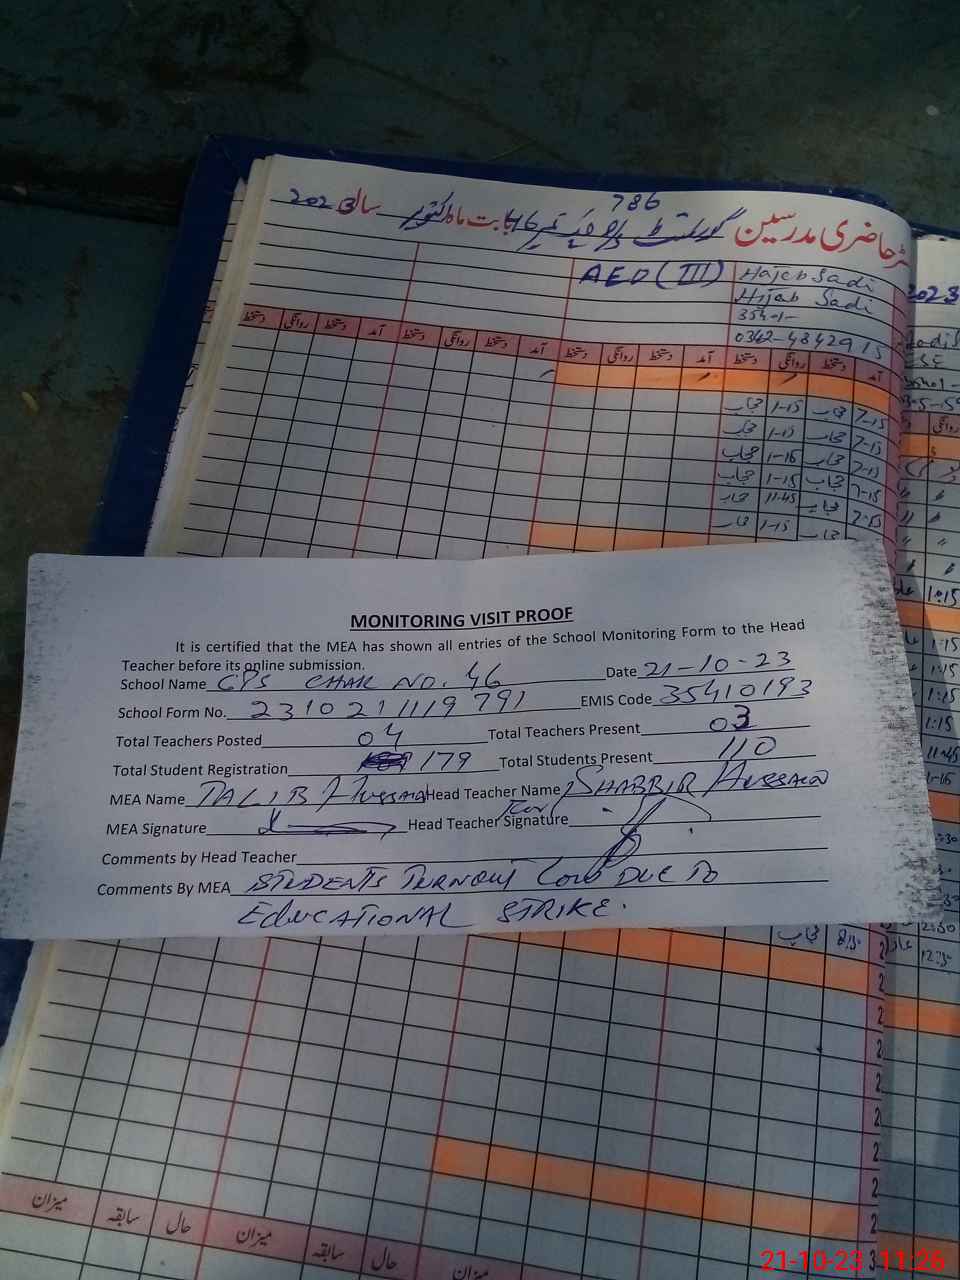 786
رجسٹر حاضری مدرسین گورنمنٹ 46 بابت ماہ اکتوبر سال 2023
AED (III) Hajeb Sadi
Hijab Sadi
35401-
0342-4842915
2023
دستخط روانگی دستخط آمد دستخط روانگی دستخط آمد دستخط روانگی دستخط آمد دستخط روانگی دستخط آمد
حجاب 1-15 حجاب 7-15
حجاب 1-15 حجاب 7-15
حجاب 1-16 حجاب 7-15
حجاب 1-15 حجاب 7-15
حجاب 11.45 حجاب
حجاب 1-15 حجاب
1:15
1:15
1:15
1:15
1:15
11-45
1-16
MONITORING VISIT PROOF
It is certified that the MEA has shown all entries of the School Monitoring Form to the Head
Teacher before its online submission.
School Name GPS CHAK NO. 46 Date 21-10-23
School Form No. 231021119791 EMIS Code 35410193
Total Teachers Posted 04 Total Teachers Present 03
Total Student Registration 179 Total Students Present 110
MEA Name TALIB Hussain Head Teacher Name SHABBIR Hussain
MEA Signature Head Teacher Signature For
Comments by Head Teacher
Comments By MEA STUDENTS TURNOUT LOW DUE TO
EDUCATIONAL STRIKE.
حجاب 8:30
2:30
12:30
میزان سابقہ حال میزان سابقہ حال میزان
21-10-23 11:26